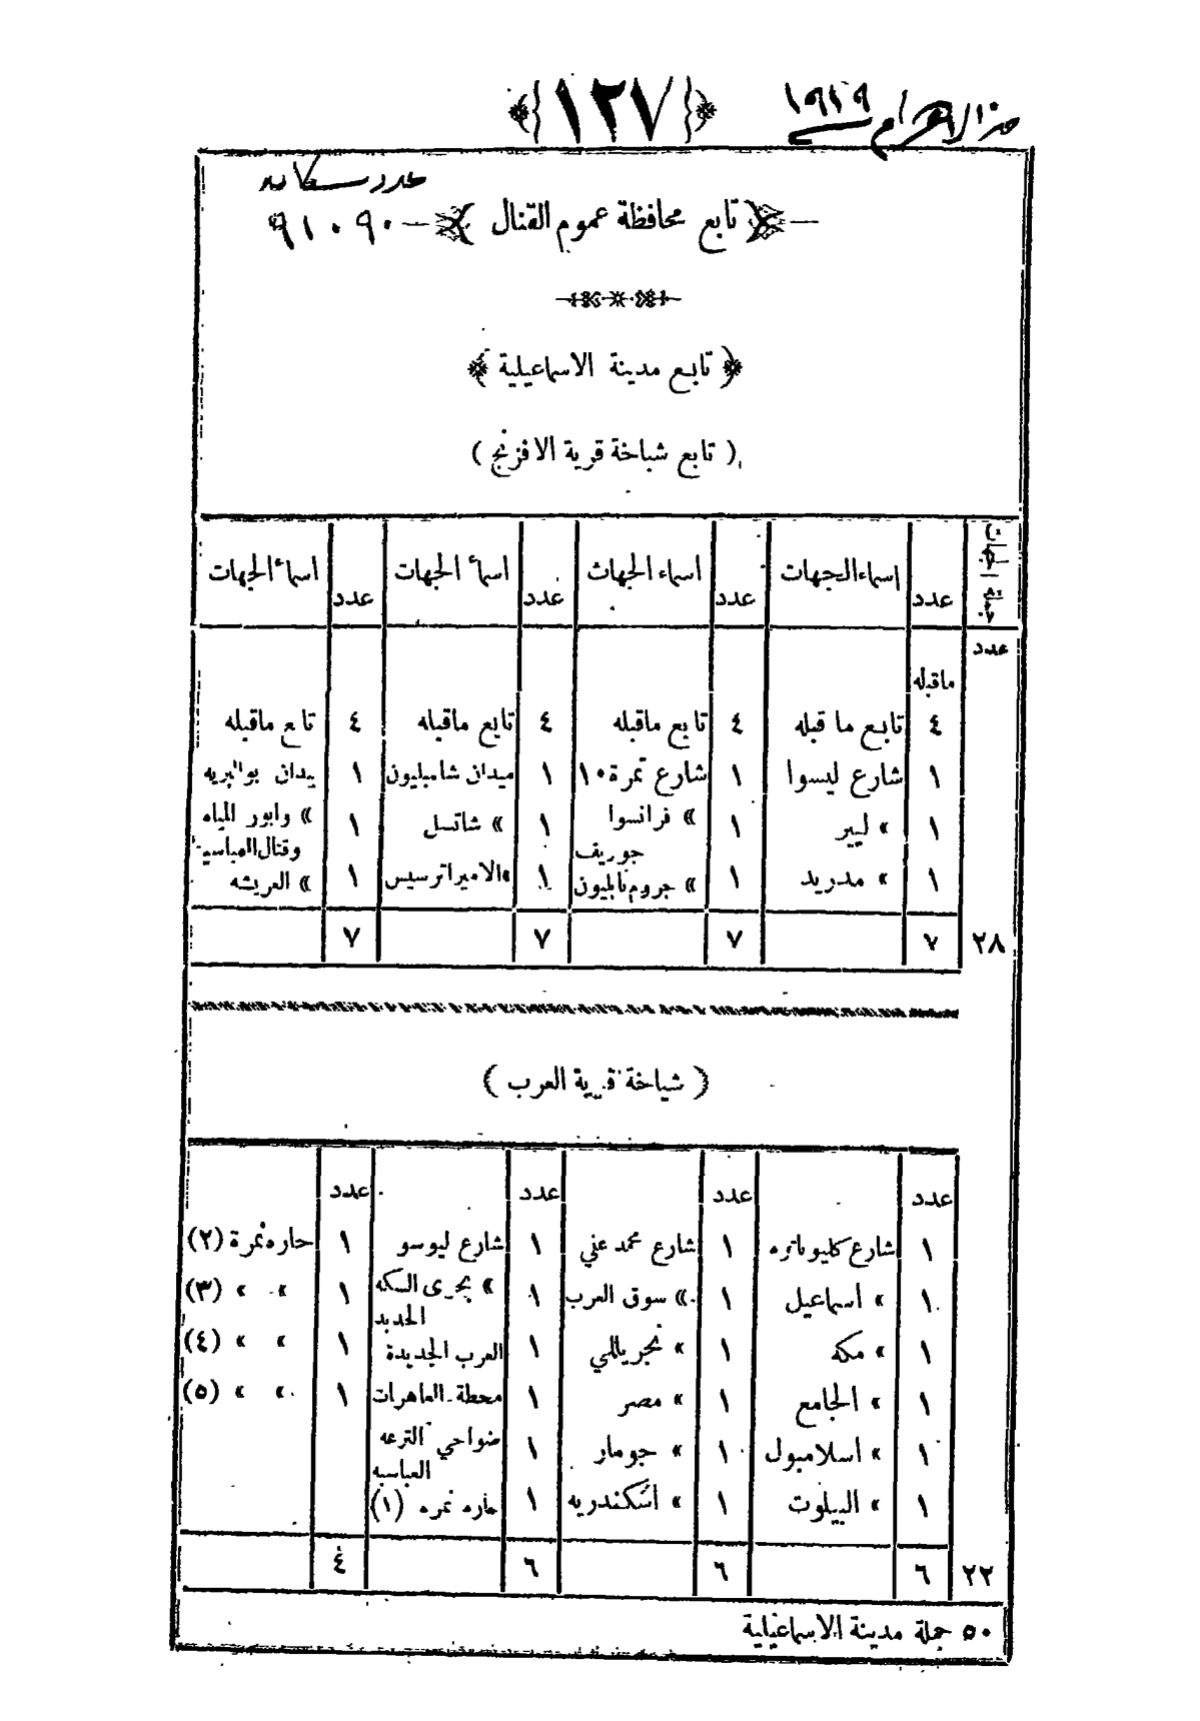 ١٢٧
من الاهرام ١٩١٩
عدد سكانه
٩١٠٩٠
تابع محافظة عموم القنال
تابع مدينة الاسماعيلية
( تابع شياخة قرية الافرنج )
جملة الجهات عدد اسماء الجهات عدد اسماء الجهات عدد اسماء الجهات عدد اسماء الجهات
عدد
ماقبله
٤ تابع ما قبله ٤ تابع ماقبله ٤ تابع ماقبله ٤ تابع ماقبله
١ شارع ليسوا ١ شارع نمرة ١٠ ١ ميدان شامبليون ١ ميدان
١ » ليير ١ » فرانسوا جوزيف ١ » شاتسل ١ » وابور المياه وقنال العباسية
١ » مدريد ١ » جروم نابليون ١ » الامبراترسيس ١ » العريشه
٢٨ ٧ ٧ ٧ ٧
( شياخة قرية العرب )
عدد عدد عدد عدد
١ شارع كليوباتره ١ شارع محمد علي ١ شارع ليوسو ١ حاره نمرة (٢)
١ » اسماعيل ١ » سوق العرب ١ » بحرى السكه الحديد ١ » » (٣)
١ » مكه ١ » ١ العرب الجديدة ١ » » (٤)
١ » الجامع ١ » مصر ١ محطة العاهرات ١ » » (٥)
١ » اسلامبول ١ » جومار ١ ضواحي الترعه العباسيه
١ » البيلوت ١ » اسكندريه ١ حاره نمره (١)
٢٢ ٦ ٦ ٦ ٤
٥٠ جملة مدينة الاسماعيلية